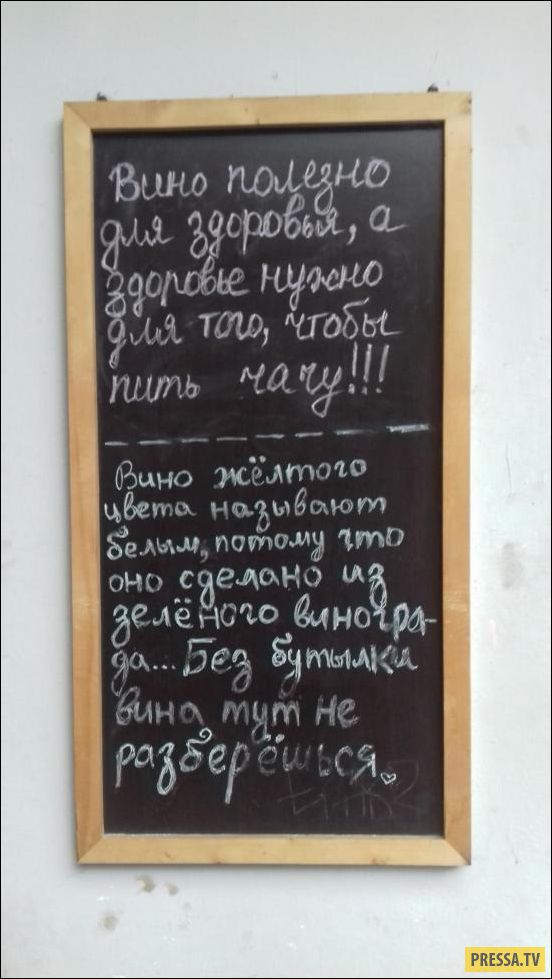 Вино полезно
для здоровья, а
здоровье нужно
для того, чтобы
пить чачу!!!
Вино жёлтого
цвета называют
белым, потому что
оно сделано из
зелёного виногра-
да... Без бутылки
вина тут не
разберёшься.
PRESSA.TV